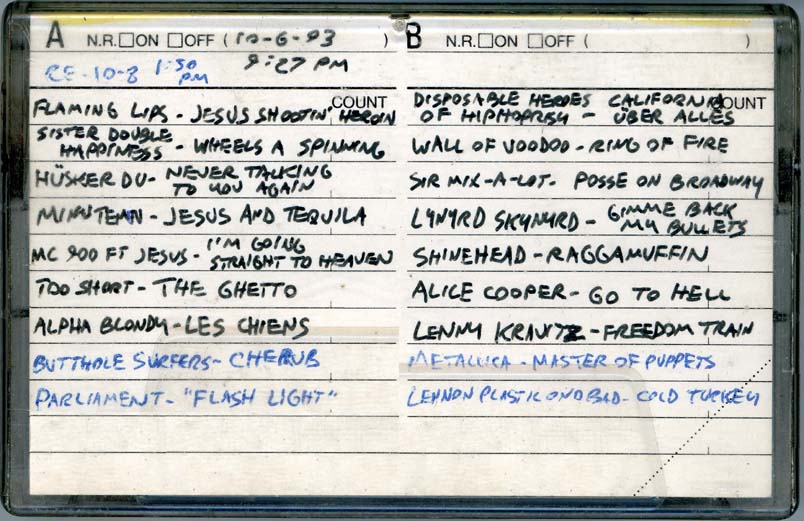 A N.R. ON OFF ( 10-6-93 )
9:27 PM
RE-10-8 1:50 PM
COUNT
FLAMING LIPS - JESUS SHOOTIN' HEROIN
SISTER DOUBLE HAPPINESS - WHEELS A SPINNING
HÜSKER DU - NEVER TALKING TO YOU AGAIN
MINUTEMN - JESUS AND TEQUILA
MC 900 FT JESUS - I'M GOING STRAIGHT TO HEAVEN
TOO SHORT - THE GHETTO
ALPHA BLONDY - LES CHIENS
BUTTHOLE SURFERS - CHERUB
PARLIAMENT - "FLASH LIGHT"
B N.R. ON OFF ( )
COUNT
DISPOSABLE HEROES OF HIPHOPRISY - CALIFORNIA ÜBER ALLES
WALL OF VOODOO - RING OF FIRE
SIR MIX-A-LOT - POSSE ON BROADWAY
LYNYRD SKYNYRD - GIMME BACK MY BULLETS
SHINEHEAD - RAGGAMUFFIN
ALICE COOPER - GO TO HELL
LENNY KRAVITZ - FREEDOM TRAIN
METALLICA - MASTER OF PUPPETS
LENNON PLASTIC ONO BAD - COLD TURKEY